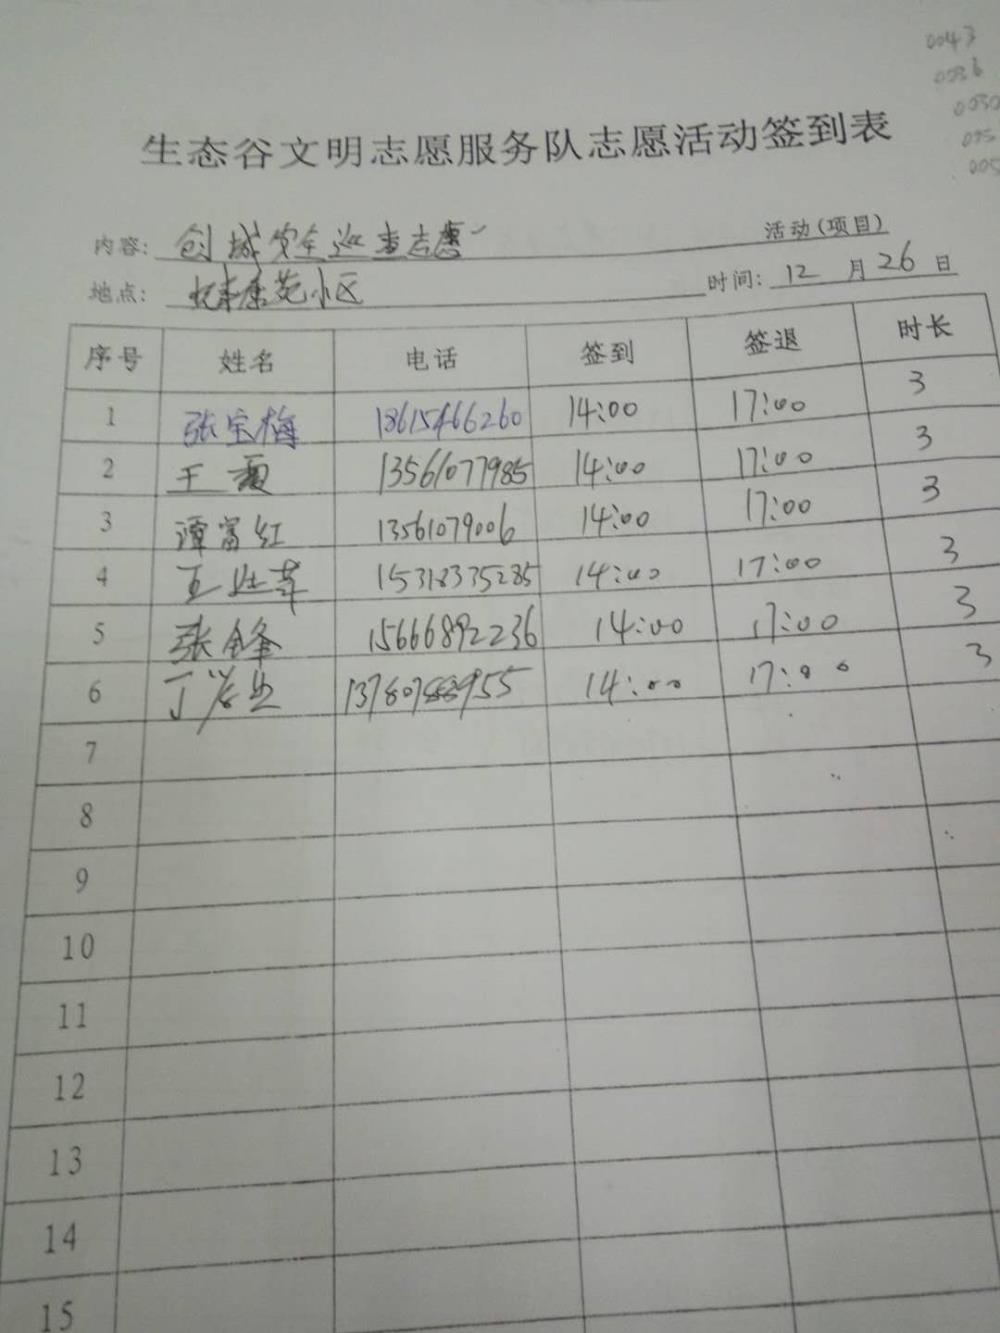 0043
0036
0030
生态谷文明志愿服务队志愿活动签到表
内容: 创城安全巡查志愿 活动(项目)
地点: 小区 时间: 12 月 26 日
序号 姓名 电话 签到 签退 时长
1 张宝梅 18615466260 14:00 17:00 3
2 王霞 13561077985 14:00 17:00 3
3 谭富红 13561079006 14:00 17:00 3
4 15318335285 14:00 17:00 3
5 张金峰 15666892236 14:00 17:00 3
6 丁 14:00 17:00 3
7
8
9
10
11
12
13
14
15